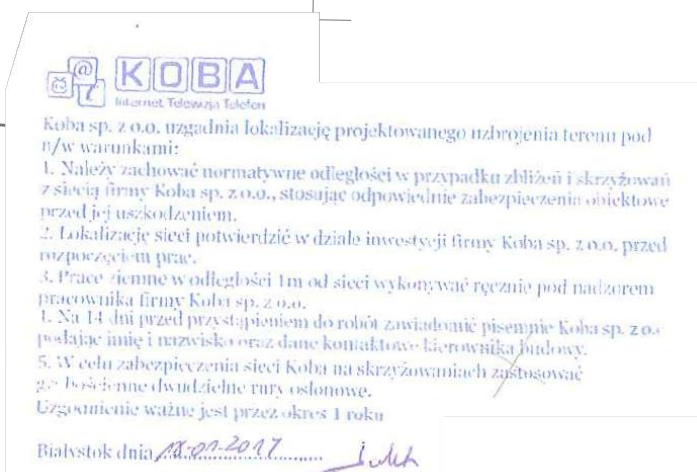 @
KOBA
Internet Telewizja Telefon
Koba sp. z o.o. uzgadnia lokalizację projektowanego uzbrojenia terenu pod
n/w warunkami:
1. Należy zachować normatywne odległości w przypadku zbliżeń i skrzyżowań
z siecią firmy Koba sp. z o.o., stosując odpowiednie zabezpieczenia obiektowe
przed jej uszkodzeniem.
2. Lokalizację sieci potwierdzić w dziale inwestycji firmy Koba sp. z o.o. przed
rozpoczęciem prac.
3. Prace ziemne w odległości 1m od sieci wykonywać ręcznie pod nadzorem
pracownika firmy Koba sp. z o.o.
4. Na 14 dni przed przystąpieniem do robót zawiadomić pisemnie Koba sp. z o.o.
podając imię i nazwisko oraz dane kontaktowe kierownika budowy.
5. W celu zabezpieczenia sieci Koba na skrzyżowaniach zastosować
grubościenne dwudzielne rury osłonowe.
Uzgodnienie ważne jest przez okres 1 roku
Białystok dnia 18-01-2017